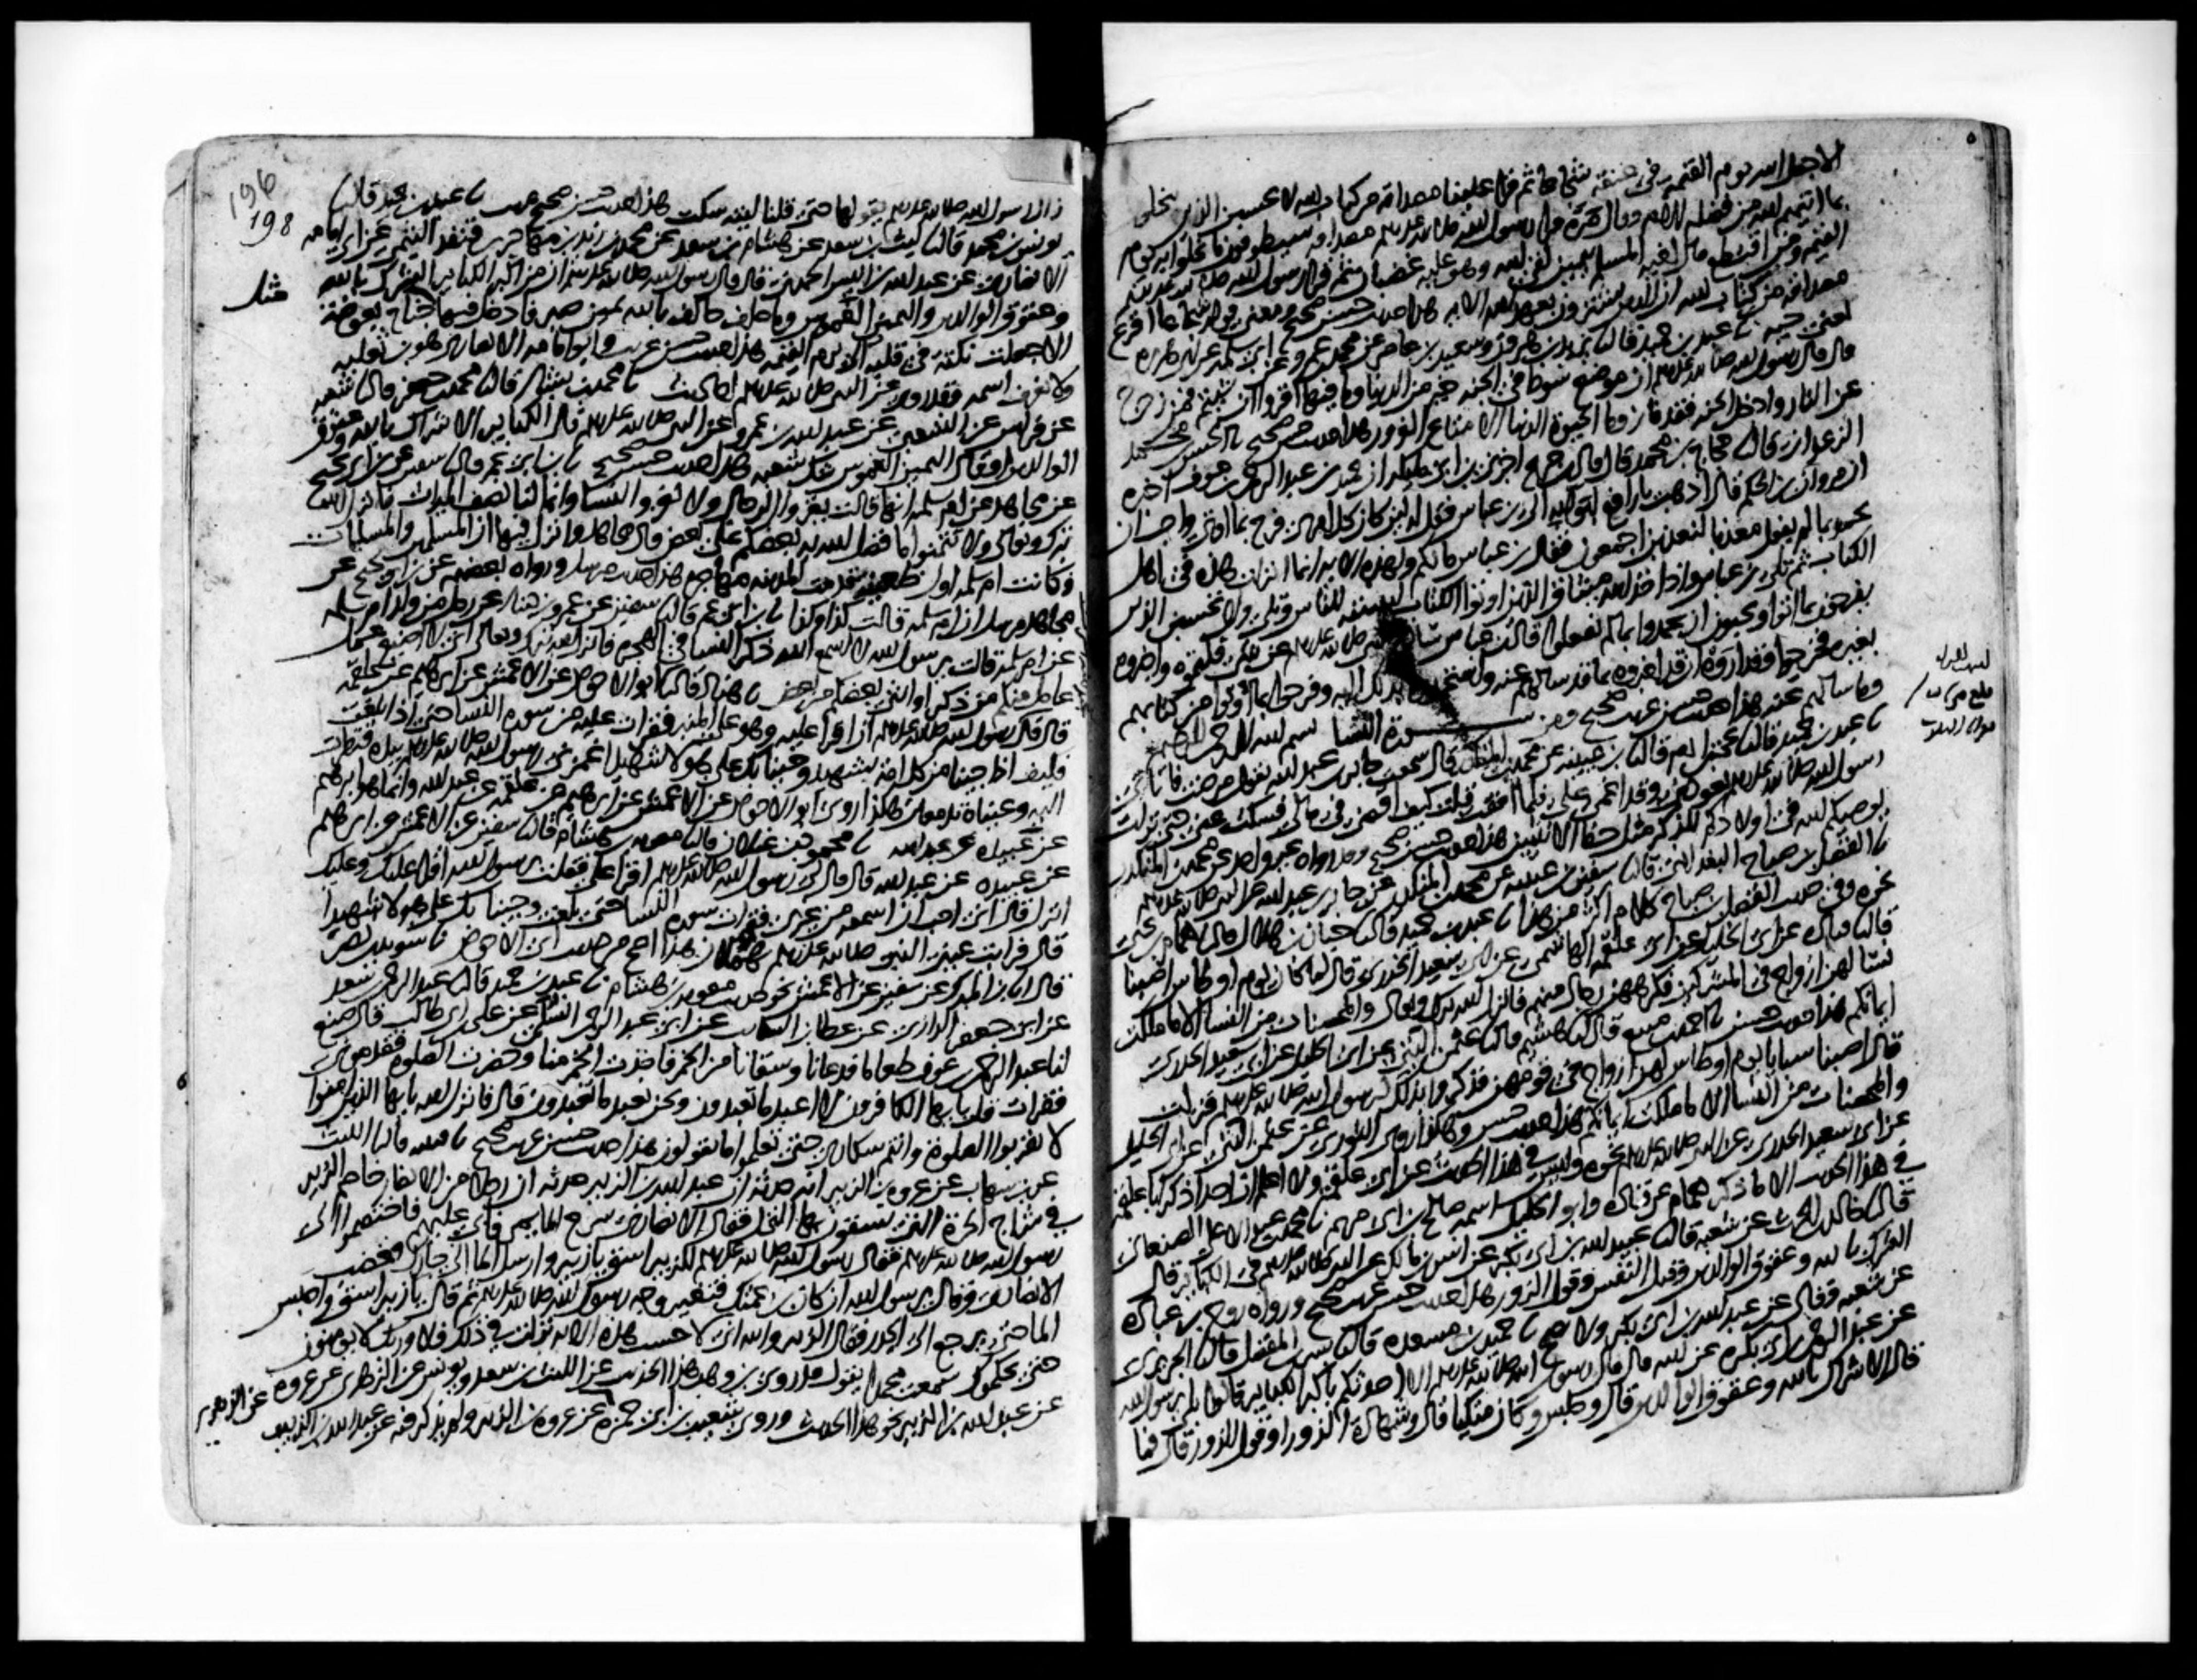 الا جعل الله يوم القيمة في عنقه شجاعا ثم قرا علينا مصداقه من كتاب الله لا يحسبن الذين يبخلون
بما اتيهم الله من فضله الاية وقال مرة قرا رسول الله صلى الله عليه وسلم مصداقه سيطوقون ما بخلوا به يوم
القيمة ومن اقتطع مال اخيه المسلم بيمين لقي الله وهو عليه غضبان ثم قرا رسول الله صلى الله عليه وسلم
مصداقه من كتاب الله ان الذين يشترون بعهد الله الاية هذا حديث حسن صحيح ومعنى قوله شجاعا اقرع
يعني حية نا عبد بن حميد قال نا يزيد بن هرون وسعيد بن عامر عن محمد بن عمرو عن ابي سلمة عن ابي هريرة
قال قال رسول الله صلى الله عليه وسلم ان موضع سوط في الجنة خير من الدنيا وما فيها اقروا ان شيتم فمن زحزح
عن النار وادخل الجنة فقد فاز وما الحيوة الدنيا الا متاع الغرور هذا حديث حسن صحيح نا الحسن بن محمد
الزعفراني قال نا حجاج بن محمد قال قال ابن جريج اخبرني ابن ابي مليكة ان حميد بن عبد الرحمن بن عوف اخبره
ان مروان بن الحكم قال اذهب يا رافع لبوابه الى ابن عباس فقل له لين كان كل امرئ فرح بما اوتي واحب ان
يحمد بما لم يفعل معذبا لنعذبن اجمعون فقال ابن عباس ما لكم ولهذه الاية انما انزلت هذه في اهل
الكتاب ثم تلى ابن عباس واذ اخذ الله ميثاق الذين اوتوا الكتاب لتبيننه للناس وتلى ولا تحسبن الذين
يفرحون بما اتوا ويحبون ان يحمدوا بما لم يفعلوا قال ابن عباس سالهم النبي صلى الله عليه وسلم عن شيء فكتموه واخبروه
بغيره فخرجوا وقد اروه ان قد اخبروه بما قد سالهم عنه واستحمدوا بذلك اليه وفرحوا بما اوتوا من كتابهم
وما سالهم عنه هذا حديث حسن غريب صحيح ومن سورة النسا بسم الله الرحمن الرحيم
نا عبد بن حميد قال نا يحيى بن ادم قال نا ابن عيينة عن محمد بن المنكدر قال سمعت جابر بن عبد الله يقول مرضت فاتاني
رسول الله صلى الله عليه وسلم يعودني وقد اغمي علي فلما افقت قلت كيف اقضي في مالي فسكت عني حتى نزلت
يوصيكم الله في اولادكم للذكر مثل حظ الانثيين هذا حديث حسن صحيح وقد رواه غير واحد عن محمد بن المنكدر
نا الفضل بن صباح البغدادي قال نا سفين بن عيينة عن محمد بن المنكدر عن جابر بن عبد الله عن النبي صلى الله عليه وسلم
نحوه وفي حديث الفضل بن صباح كلام اكثر من هذا نا عبد بن حميد قال نا حبان بن هلال قال نا همام بن يحيى
قال نا قتادة عن ابي الخليل عن ابي علقمة الهاشمي عن ابي سعيد الخدري قال لما كان يوم اوطاس اصبنا
نسا لهن ازواج في المشركين فكرههن رجال منهم فانزل الله تبارك وتعالى والمحصنات من النسا الا ما ملكت
ايمانكم هذا حديث حسن نا احمد بن منيع قال نا هشيم قال نا عثمن البتي عن ابي الخليل عن ابي سعيد الخدري
قال اصبنا سبايا يوم اوطاس لهن ازواج في قومهن فذكروا ذلك لرسول الله صلى الله عليه وسلم فنزلت
والمحصنات من النسا الا ما ملكت ايمانكم هذا حديث حسن وهكذا روى الثوري عن عثمن البتي عن ابي الخليل
عن ابي سعيد الخدري عن النبي صلى الله عليه وسلم نحوه وليس في هذا الحديث عن ابي علقمة ولا اعلم ان احدا ذكر ابا علقمة
في هذا الحديث الا ما ذكر همام عن قتادة وابو الخليل اسمه صالح بن ابي مريم نا محمد بن عبد الاعلى الصنعاني
قال نا خالد بن الحرث عن شعبة قال نا عبيد الله بن ابي بكر عن انس بن مالك عن النبي صلى الله عليه وسلم في الكباير قال
الشرك بالله وعقوق الوالدين وقتل النفس وقول الزور هذا حديث حسن غريب صحيح ورواه روح بن عبادة
عن شعبة وقال عن عبد الله بن ابي بكر ولا يصح نا حميد بن مسعدة قال نا بشر بن المفضل قال نا الجريري
عن عبد الرحمن بن ابي بكرة عن ابيه قال قال رسول الله صلى الله عليه وسلم الا احدثكم باكبر الكباير قالوا بلى يرسول الله
قال الاشراك بالله وعقوق الوالدين قال وجلس وكان متكيا قال وشهادة الزور او قول الزور قال فما
196
198
زال رسول الله صلى الله عليه وسلم يقولها حتى قلنا ليته سكت هذا حديث حسن صحيح غريب نا عبد بن حميد قال نا
يونس بن محمد قال نا ليث بن سعد عن هشام بن سعد عن محمد بن زيد بن مهاجر بن قنفذ التيمي عن ابي امامة
الانصاري عن عبد الله بن انيس الجهني قال قال رسول الله صلى الله عليه وسلم ان من اكبر الكباير الشرك بالله
وعقوق الوالدين واليمين الغموس وما حلف حالف بالله يمين صبر فادخل فيها جناح بعوضة
الا جعلت نكتة في قلبه الى يوم القيمة هذا حديث حسن غريب وابو امامة الانصاري هو بن ثعلبة
ولا نعرف اسمه وقد روى عن النبي صلى الله عليه وسلم احاديث نا محمد بن بشار قال نا محمد بن جعفر قال نا شعبة
عن فراس عن الشعبي عن عبد الله بن عمرو عن النبي صلى الله عليه وسلم قال الكباير الاشراك بالله وعقوق
الوالدين او قال اليمين الغموس شك شعبة هذا حديث حسن صحيح نا ابن ابي عمر قال نا سفين عن ابن ابي نجيح
عن مجاهد عن ام سلمة انها قالت يغزوا الرجال ولا تغزوا النسا وانما لنا نصف الميراث فانزل الله
تبارك وتعالى ولا تتمنوا ما فضل الله به بعضكم على بعض قال مجاهد وانزل فيها ان المسلمين والمسلمات
وكانت ام سلمة اول ظعينة قدمت المدينة مهاجرة هذا حديث مرسل ورواه بعضهم عن ابن ابي نجيح عن
مجاهد مرسل ان ام سلمة قالت كذا وكذا نا ابن ابي عمر قال نا سفين عن عمرو بن دينار عن رجل من ولد ام سلمة
عن ام سلمة قالت يرسول الله لا اسمع الله ذكر النسا في الهجرة فانزل الله تبارك وتعالى اني لا اضيع عمل
عامل منكم من ذكر او انثى بعضكم من بعض نا هناد قال نا ابو الاحوص عن الاعمش عن ابرهيم عن علقمة
قال قال رسول الله صلى الله عليه وسلم ان اقرا عليه وهو على المنبر فقرات عليه من سورة النسا حتى اذا بلغت
فكيف اذا جينا من كل امة بشهيد وجينا بك على هولا شهيدا غمزني رسول الله صلى الله عليه وسلم بيده فنظرت
اليه وعيناه تدمعان هكذا روى ابو الاحوص عن الاعمش عن ابرهيم عن علقمة عن عبد الله وانما هو ابرهيم
عن عبيدة عن عبد الله نا محمود بن غيلان قال نا معوية بن هشام قال نا سفين عن الاعمش عن ابرهيم
عن عبيدة عن عبد الله قال قال لي رسول الله صلى الله عليه وسلم اقرا علي فقلت يرسول الله اقرا عليك وعليك
انزل قال اني احب ان اسمعه من غيري فقرات سورة النسا حتى بلغت وجينا بك على هولا شهيدا
قال فرايت عيني النبي صلى الله عليه وسلم تهملان هذا اصح من حديث ابي الاحوص نا سويد بن نصر
قال نا ابن المبارك عن سفين عن الاعمش نحو حديث معوية بن هشام نا عبد بن حميد قال نا عبد الرحمن بن سعد
عن ابي جعفر الرازي عن عطا بن السايب عن ابي عبد الرحمن السلمي عن علي بن ابي طالب قال صنع
لنا عبد الرحمن بن عوف طعاما فدعانا وسقانا من الخمر فاخذت الخمر منا وحضرت الصلوة فقدموني
فقرات قل يايها الكافرون لا اعبد ما تعبدون ونحن نعبد ما تعبدون قال فانزل الله يايها الذين امنوا
لا تقربوا الصلوة وانتم سكارى حتى تعلموا ما تقولون هذا حديث حسن غريب صحيح نا قتيبة قال نا الليث
عن بن شهاب عن عروة بن الزبير انه حدثه ان عبد الله بن الزبير حدثه ان رجلا من الانصار خاصم الزبير
في شراج الحرة التي يسقون بها النخل فقال الانصاري سرح الما يمر فابى عليه فاختصموا الى
رسول الله صلى الله عليه وسلم فقال رسول الله صلى الله عليه وسلم للزبير اسق يا زبير وارسل الما الى جارك فغضب
الانصاري وقال يرسول الله ان كان بن عمتك فتغير وجه رسول الله صلى الله عليه وسلم ثم قال يا زبير اسق واحبس
الما حتى يرجع الى الجدر فقال الزبير والله اني لاحسب هذه الاية نزلت في ذلك فلا وربك لا يومنون
حتى يحكموك سمعت محمدا يقول قد روى بن وهب هذا الحديث عن الليث بن سعد ويونس عن الزهري عن عروة
عن عبد الله بن الزبير نحو هذا الحديث وروى شعيب بن ابي حمزة عن الزهري عن عروة بن الزبير ولم يذكر فيه عن عبد الله بن الزبير